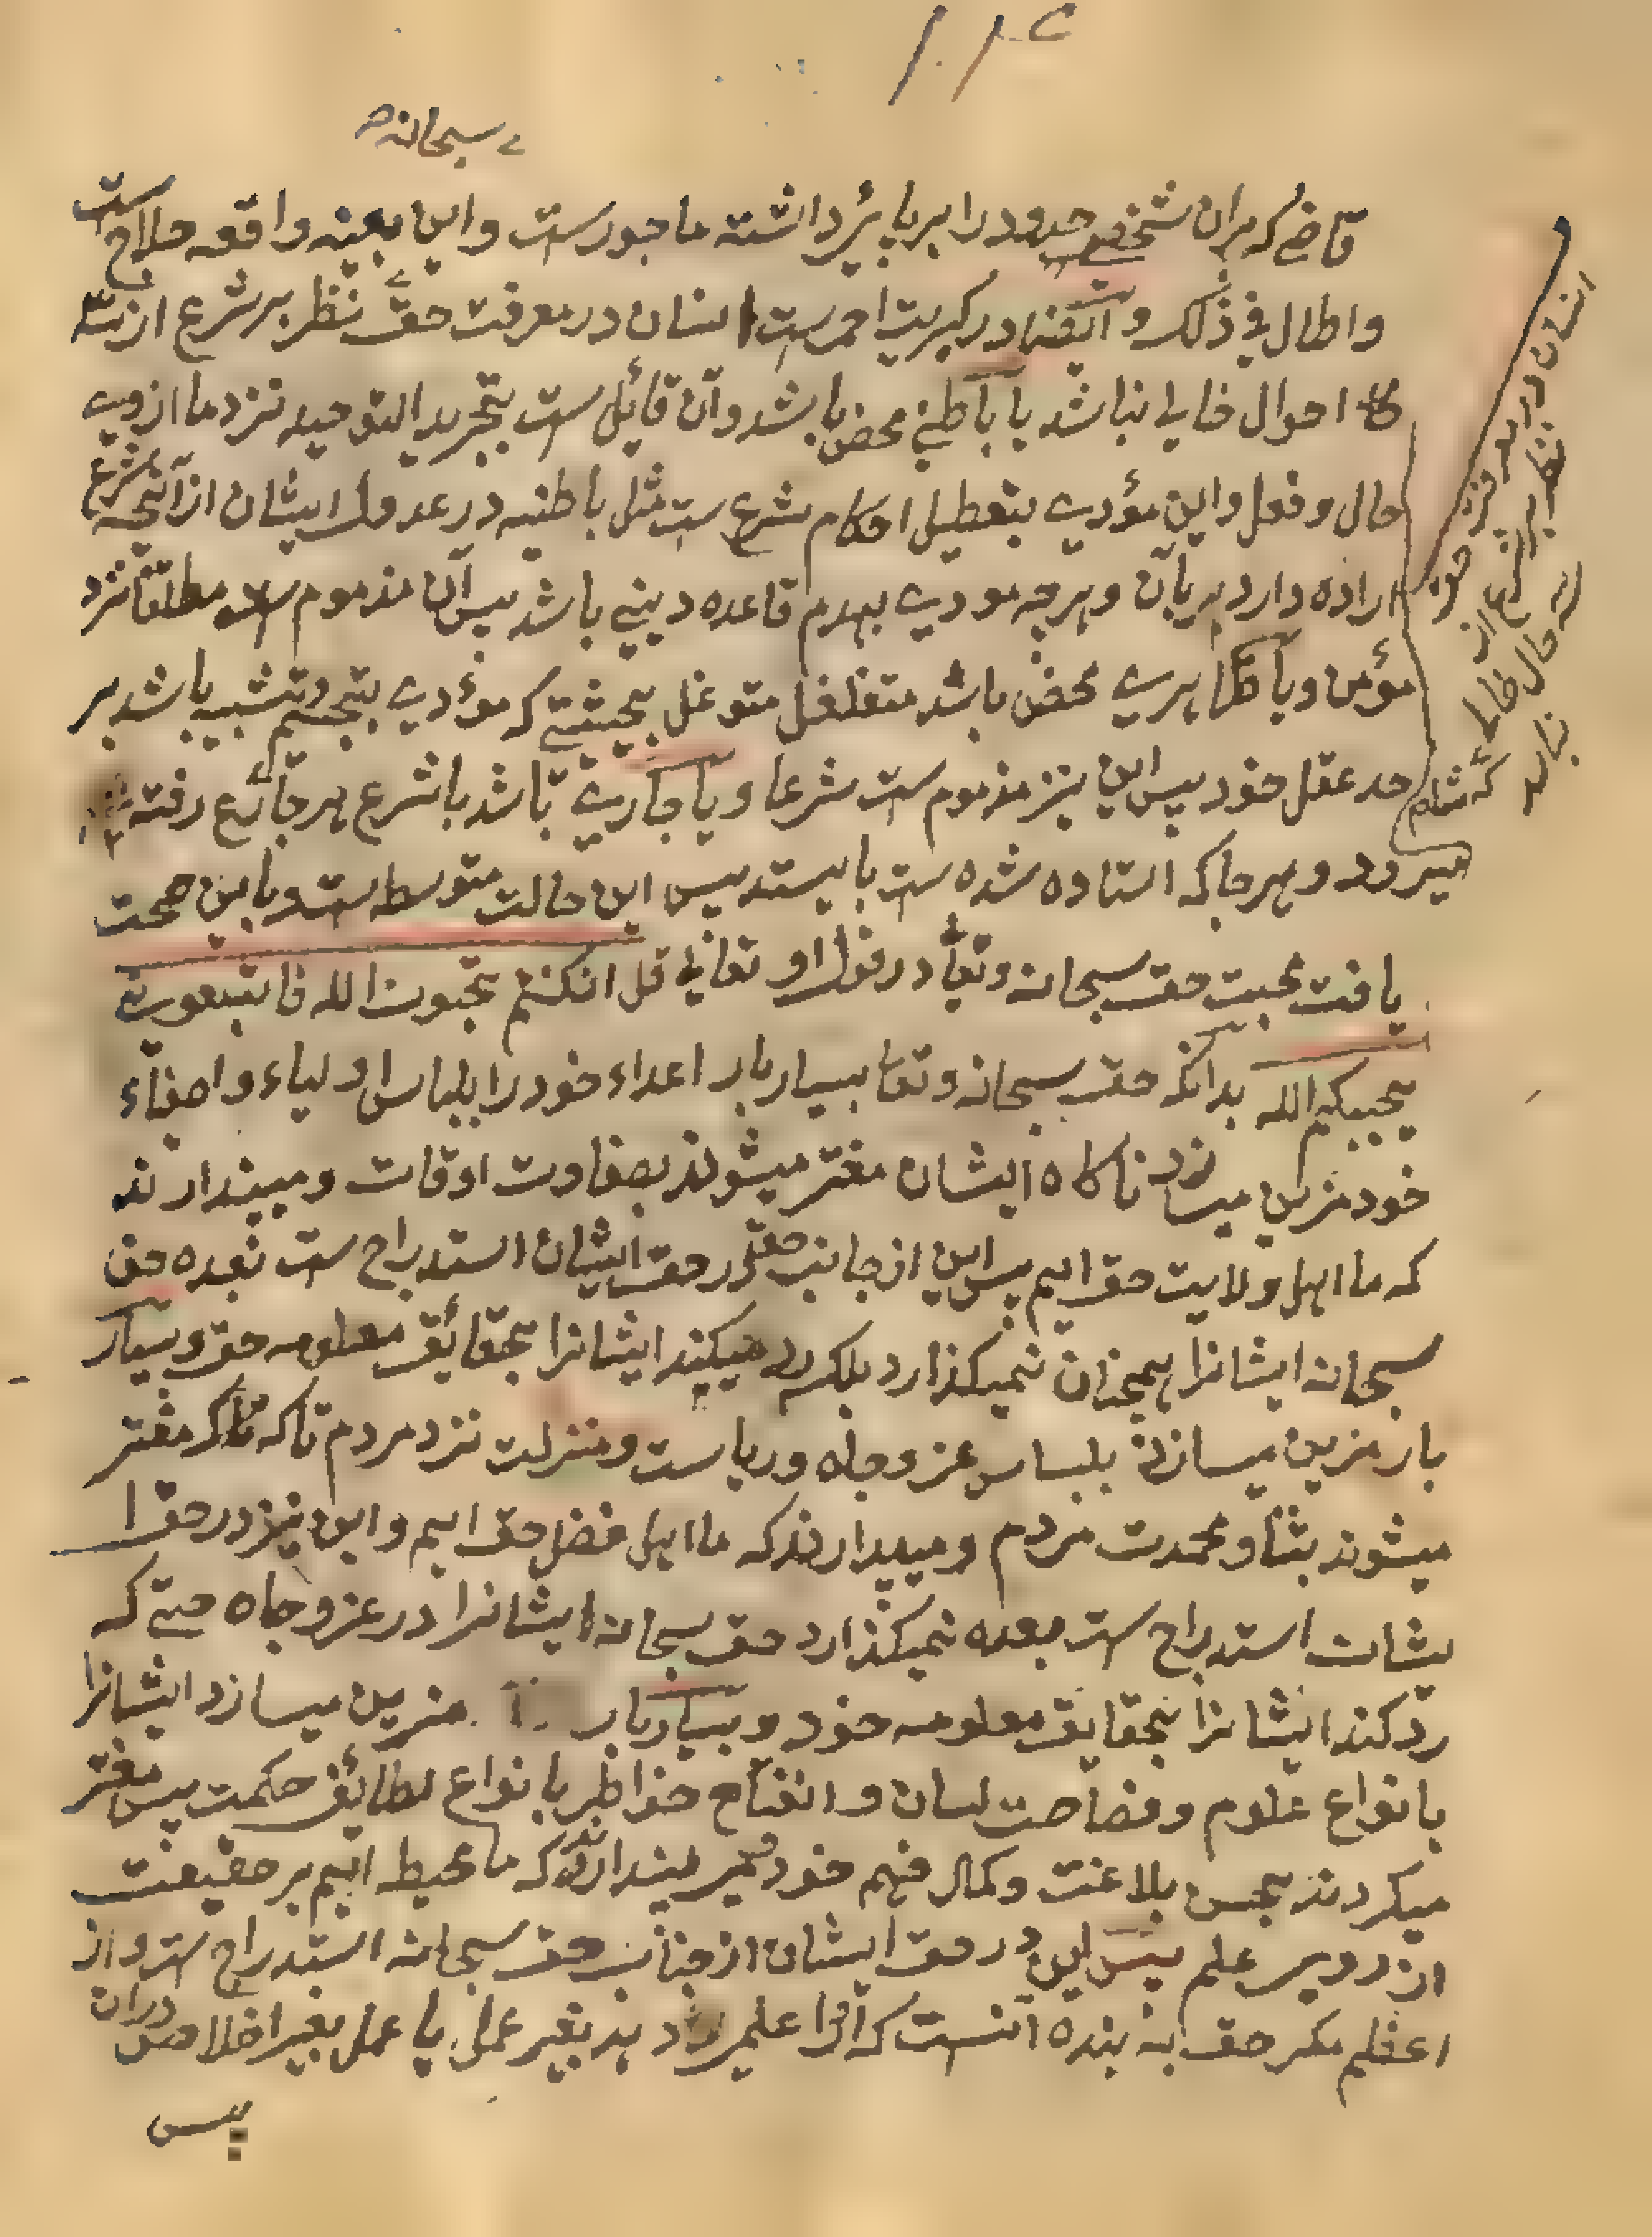 سبحانه صح
قاضے که بران شخصے حدود را برپا داشته ماجورست واین بعینه واقعه حلاج ست
واطال في ذلك و ایضا در کبریت احمرست انسان در معرفت حق نظر بر شرع از سه
احوال خالے نباشد یا باطنے محض باشد وآن قائل ست بتجرید التوحید نزد ما ازروے
حال و فعل واین مؤدے بتعطیل احکام شرع ست مثل باطنیه در عدول ایشان ازآنچه شرع
اراده دارد بریان وہرچه مودے بہدم قاعده دینے باشد پس آن مذموم ست مطلقا نزد
مؤمن ویا ظاہرے محض باشد متغلغل متوغل بحیثیتے که مؤدے بتجسم وتشبیه باشد بر
حد عقل خود پس این نیز مذموم ست شرعا ویا جارے باشد با شرع ہرجا شرع رفته
میرود وہرجا که استاده شده ست بایستد پس این حالت متوسطه ست وباین صحت
یافت محبت حق سبحانه وتعا در قول او تعالے قل ان کنتم تحبون الله فاتبعونے
یحببکم الله بدانکه حق سبحانه وتعا بسیار بار اعداء خود را بلباس اولیاء واصفاء
خود مزین میسازد ناگاه ایشان مغتر میشوند بصفاوت اوقات ومیپندارند
که ما اہل ولایت حق ایم پس این از جانب حق در حق ایشان استدراج ست بعده حق
سبحانه ایشانرا ہمچنان نمیگذارد بلکه رد میکند ایشانرا بحقائق معلومه حق وبسیار
بار مزین میسازد بلباس عز وجاه وریاست ومنزلت نزد مردم تا که مغتر
میشوند بثنا ومحمدت مردم ومیپندارند که ما اہل فضل حق ایم واین نیز در حق ا
یشان استدراج ست بعده نمیگذارد حق سبحانه ایشانرا در عز وجاه حتے که
رد کند ایشانرا بحقایق معلومه خود وبسیار بار مزین میسازد ایشانرا
بانواع علوم وفصاحت لسان وانفتاح خواطر بانواع لطائف حکمت پس مغتر
میگردند بحسن بلاغت وکمال فہم خود ومیپندارند که ما محیط ایم بر حقیقت
از روے علم پس این در حق ایشان از جناب حق سبحانه استدراج ست واز
اعظم مکر حق به بنده آنست که اورا علم دہد بغیر عمل یا عمل بغیر اخلاص دران
پس
انسان در معرفت حق
نظر بر شرع از
سه حال خالے
نباشد